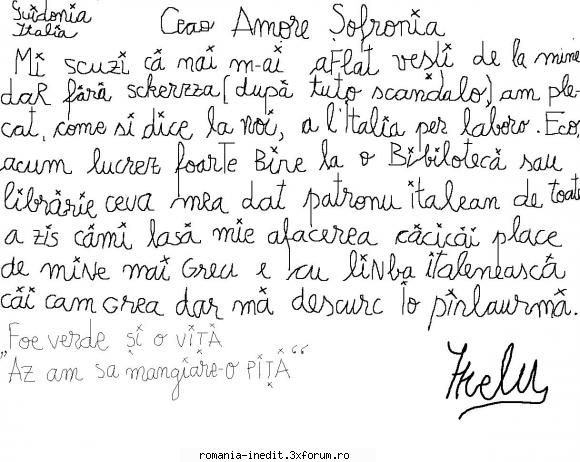 Guidonia
Italia
Ceao Amore Șofronia
Mi scuzi că nai m-ai aflat vești de la mine
daR fără scherzza (după tuto scandalo) am ple-
cat, come si dice la noi, a l'Italia per laboro. Eco,
acum lucrez foarTe Bine la o Bibilotecă sau
librărie ceva mea dat patronu italean de toate
a zis cămi lasă mie afacerea căcicăi place
de miNe mai Greu e cu liNba italenească
căi cam Grea dar mă descurc io pînlaurmă.
Foe verde și o viȚĂ
„Az am sa mangiare-o PIȚĂ“
romania-inedit.3xforum.ro